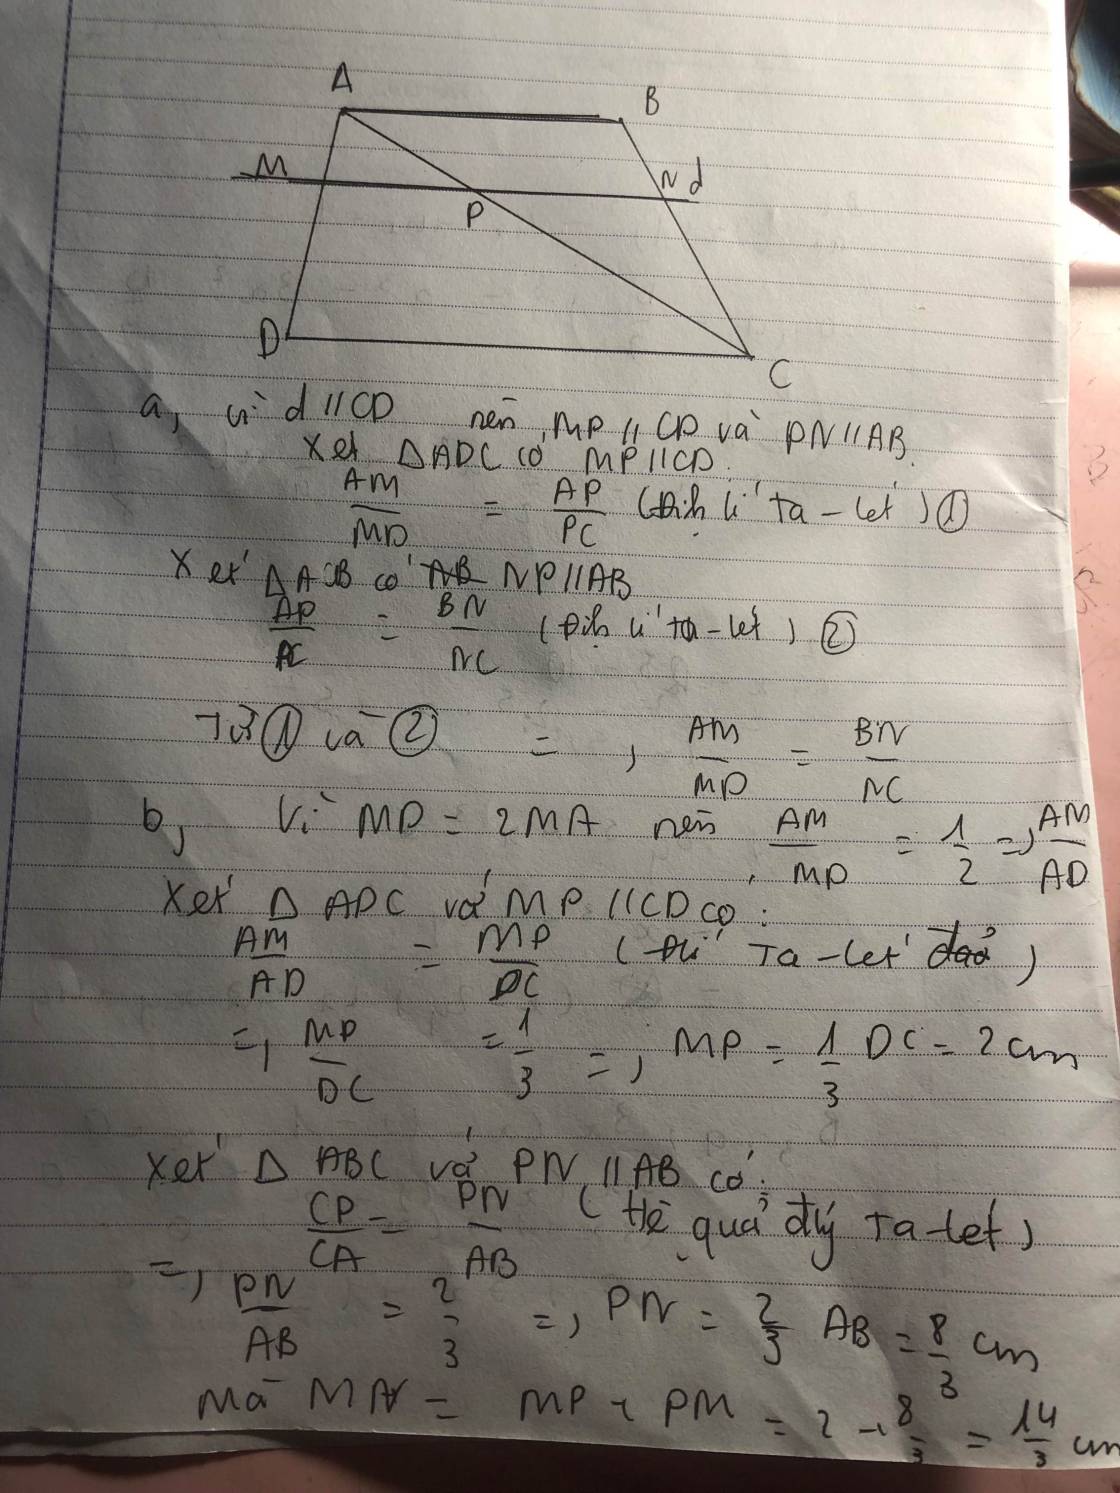 A
B
M
N d
P
D
C
a, vì d // CD nên MP // CD và PN // AB.
Xét ΔADC có MP // CD.
AM/MD = AP/PC (Định lí Ta-lét) ①
Xét ΔACB có NP // AB
AP/PC = BN/NC (Định lí Ta-lét) ②
Từ ① và ② => AM/MD = BN/NC
b, Vì MD = 2MA nên AM/MD = 1/2 => AM/AD
Xét Δ ADC và MP // CD có:
AM/AD = MP/DC ( Ta-lét )
=> MP/DC = 1/3 => MP = 1/3 DC = 2 cm
Xét Δ ABC và PN // AB có:
CP/CA = PN/AB (Hệ quả đlý Ta-lét)
=> PN/AB = 2/3 => PN = 2/3 AB = 8/3 cm
Mà MN = MP + PM = 2 + 8/3 = 14/3 cm